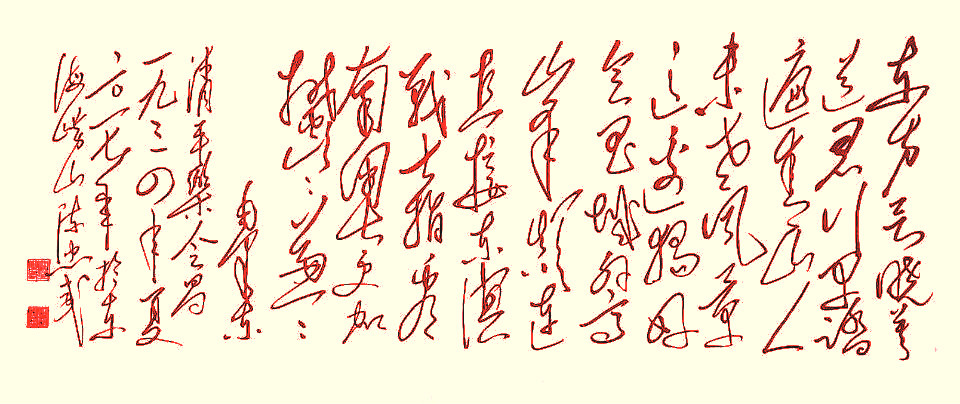 东方欲曉莫
道君行早踏
遍青山人
未老风景
这边独好
会昌城外高
峯颠连
直接东溟
战士指看
南粤更加
鬱〻葱〻
毛泽东
清平乐会昌
一九三四年夏
二〇一七年於东
海崂山陈